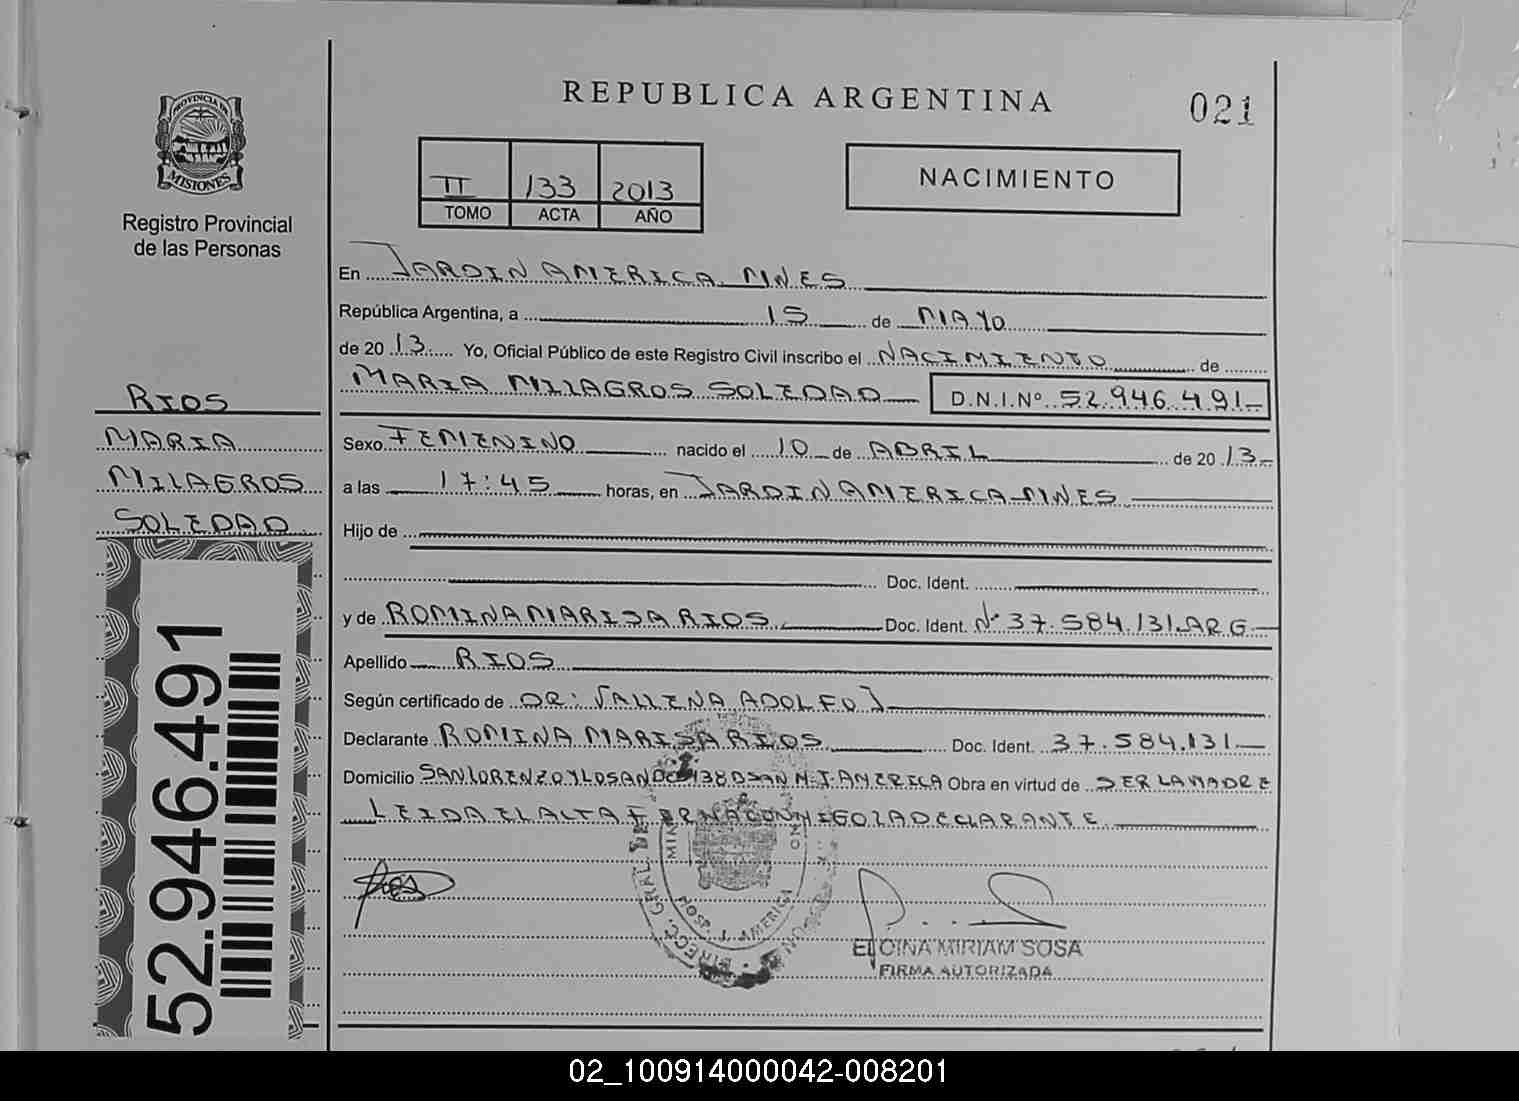 REPUBLICA ARGENTINA
021
PROVINCIA DE
MISIONES
Registro Provincial
de las Personas
II 133 2013
TOMO ACTA AÑO
NACIMIENTO
En JARDIN AMERICA MNES
República Argentina, a 15 de MAYO
de 2013 Yo, Oficial Público de este Registro Civil inscribo el NACIMIENTO de
MARIA MILAGROS SOLEDAD D.N.I.Nº 52.946.491
RIOS
MARIA
MILAGROS
SOLEDAD
Sexo FEMENINO nacido el 10 de ABRIL de 2013
a las 17:45 horas, en JARDIN AMERICA MNES
Hijo de
Doc. Ident.
y de ROMINA MARISA RIOS Doc. Ident. Nº 37.584.131 ARG
Apellido RIOS
Según certificado de DR: VALLENA ADOLFO J
Declarante ROMINA MARISA RIOS Doc. Ident. 37.584.131
Domicilio SAN LORENZO Y LOS AND 138 D SAN M. J. AMERICA Obra en virtud de SER LA MADRE
LEIDA EL ACTA FIRMA CONMIGO LA DECLARANTE
52.946.491
DIRECC. GRAL. DE
HOSP. J. AMERICA
ELCINA MIRIAM SOSA
FIRMA AUTORIZADA
02_100914000042-008201